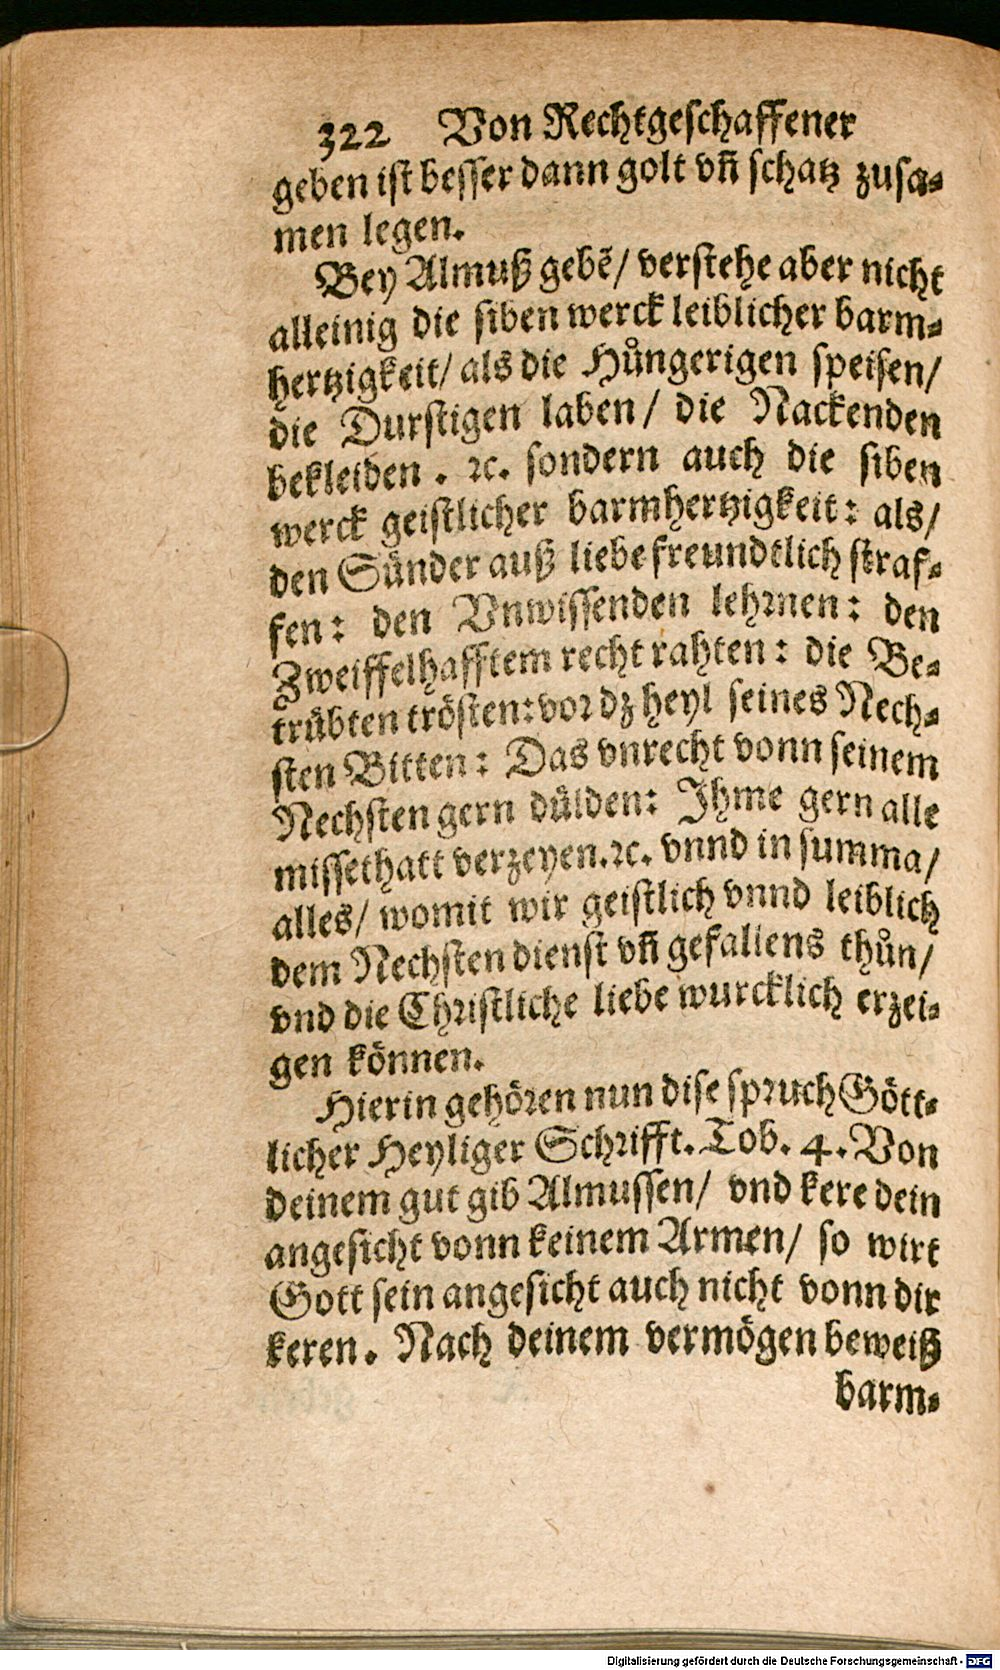 322 Von Rechtgeschaffener
geben ist besser dann golt vñ schatz zusa-
men legen.
Bey Almuß gebē/ verstehe aber nicht
alleinig die siben werck leiblicher barm-
hertzigkeit/ als die Hůngerigen speisen/
die Durstigen laben/ die Nackenden
bekleiden. ꝛc. sondern auch die siben
werck geistlicher barmhertzigkeit: als/
den Sünder auß liebe freundtlich straf-
fen: den Vnwissenden lehrnen: den
Zweiffelhafftem recht rahten: die Be-
trübten trösten: vor dz heyl seines Nech-
sten Bitten: Das vnrecht vonn seinem
Nechsten gern dülden: Ihme gern alle
missethatt verzeyen. ꝛc. vnnd in summa/
alles/ womit wir geistlich vnnd leiblich
dem Nechsten dienst vñ gefallens thůn/
vnd die Christliche liebe wurcklich erzei-
gen können.
Hierin gehören nun dise spruch Gött-
licher Heyliger Schrifft. Tob. 4. Von
deinem gut gib Almussen/ vnd kere dein
angesicht vonn keinem Armen/ so wirt
Gott sein angesicht auch nicht vonn dir
keren. Nach deinem vermögen beweiß
barm-
Digitalisierung gefördert durch die Deutsche Forschungsgemeinschaft - DFG